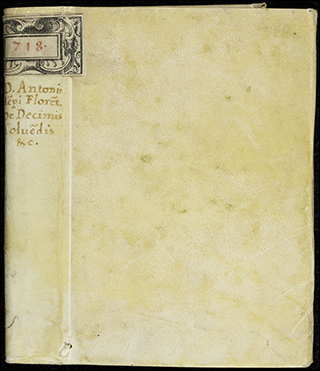 718.
D. Antonii
epi Florẽt.
De Decimis
solvẽdis
&c.